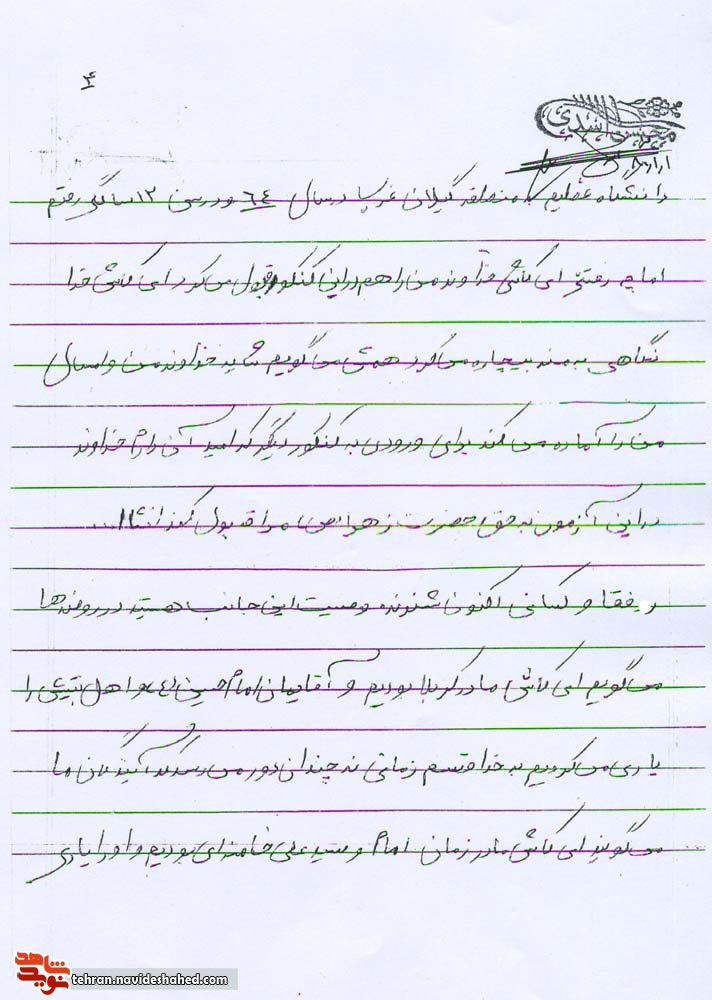 ۴
محسن اسدی
دانشگاه عظیم به منطقه گیلان غرب در سال ٦٤ و در سن ۱۲ سالگی رفتم
اما چه رفتنی ای کاش خداوند من را هم در این کنکور قبول می کرد ای کاش خدا
نگاهی به بنده بیچاره می کرد همش می گویم شاید خداوند من و امسال
من را آماده می کند برای ورودی به کنکور دیگر که امید آن دارم خداوند
در این آزمون به حق حضرت زهرا (س) مرا قبول کند انشاا...
رفقا و کسانی اکنون شنونده وصیت این جانب هستید در روضه ها
می گویم ای کاش ما در کربلا بودیم و آقایمان امام حسین (ع) و اهل بیتش را
یاری می کردیم به خدا قسم زمانی نه چندان دور می رسد که آیندگان ما
می گویند ای کاش ما در زمان امام و سید علی خامنه ای بودیم و او را یاری
شاهد
نوید
tehran.navideshahed.com